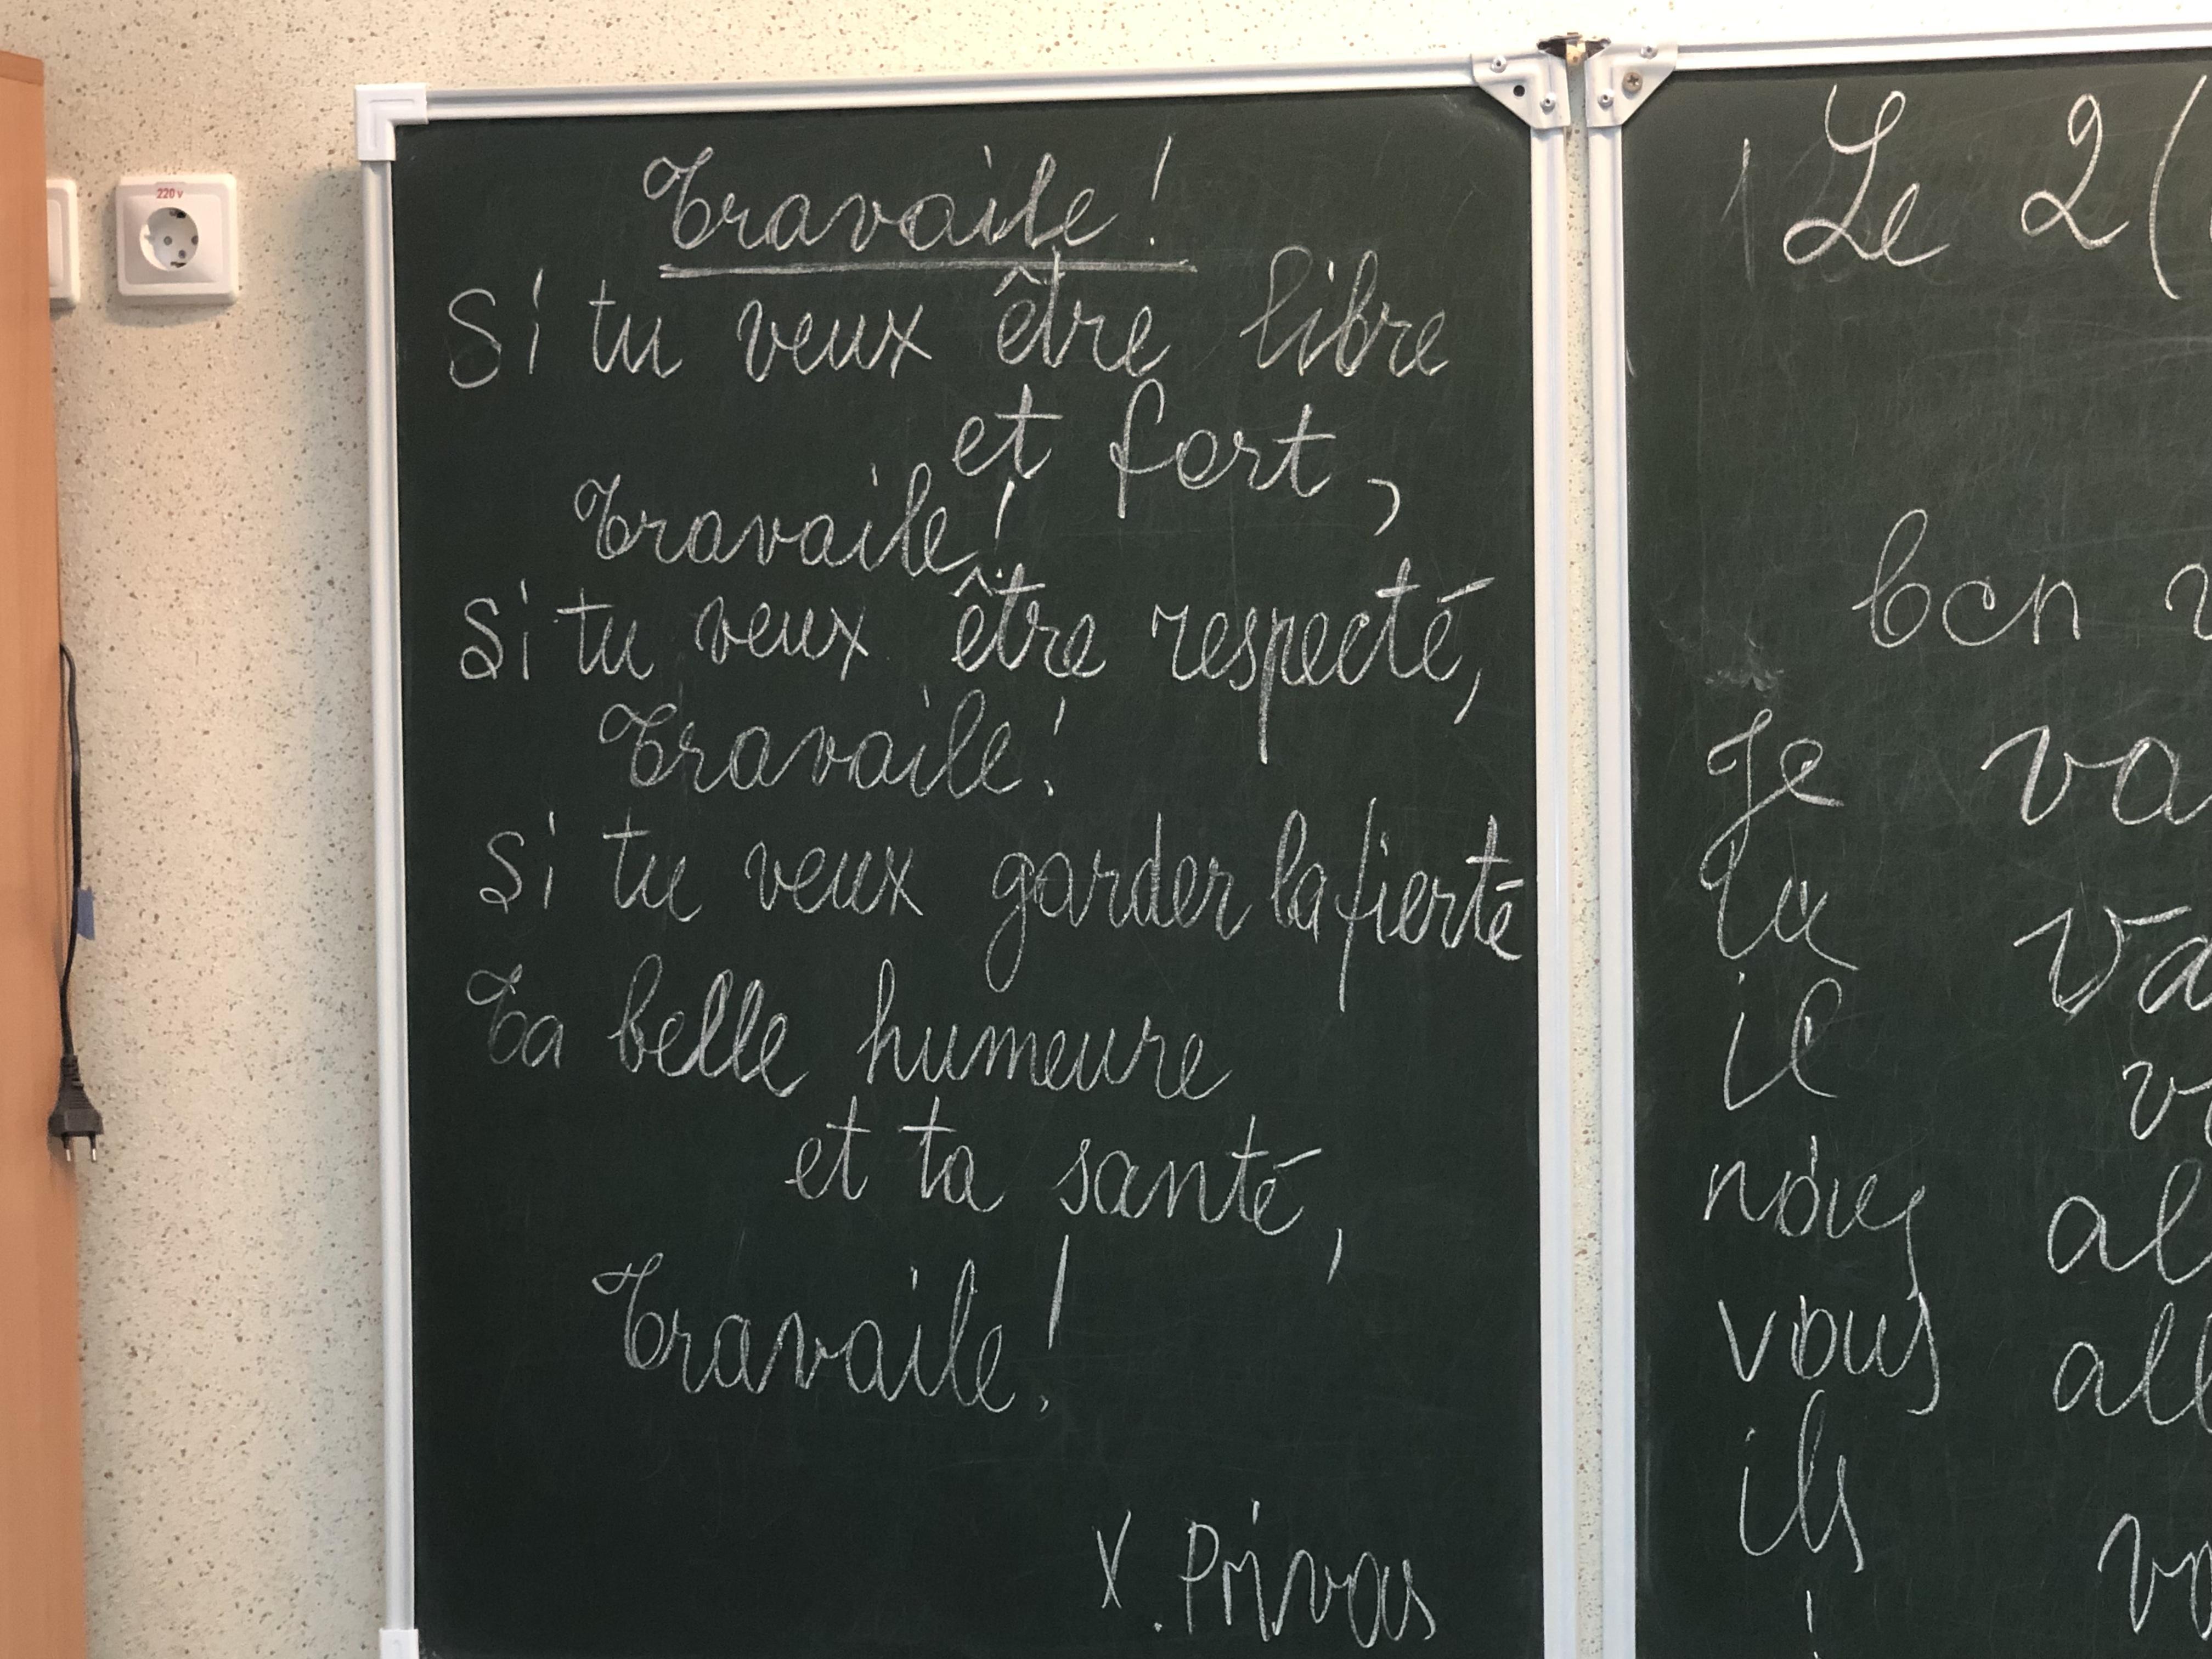 220 v
Travaile!
Si tu veux être libre
et fort,
Travaile!
Si tu veux être respecté,
Travaile!
Si tu veux garder la fierté
Ta belle humeure
et ta santé,
Travaile!
X. Privas
Le 2 (
bon
Je va
tu va
il v
nous al
vous all
ils v